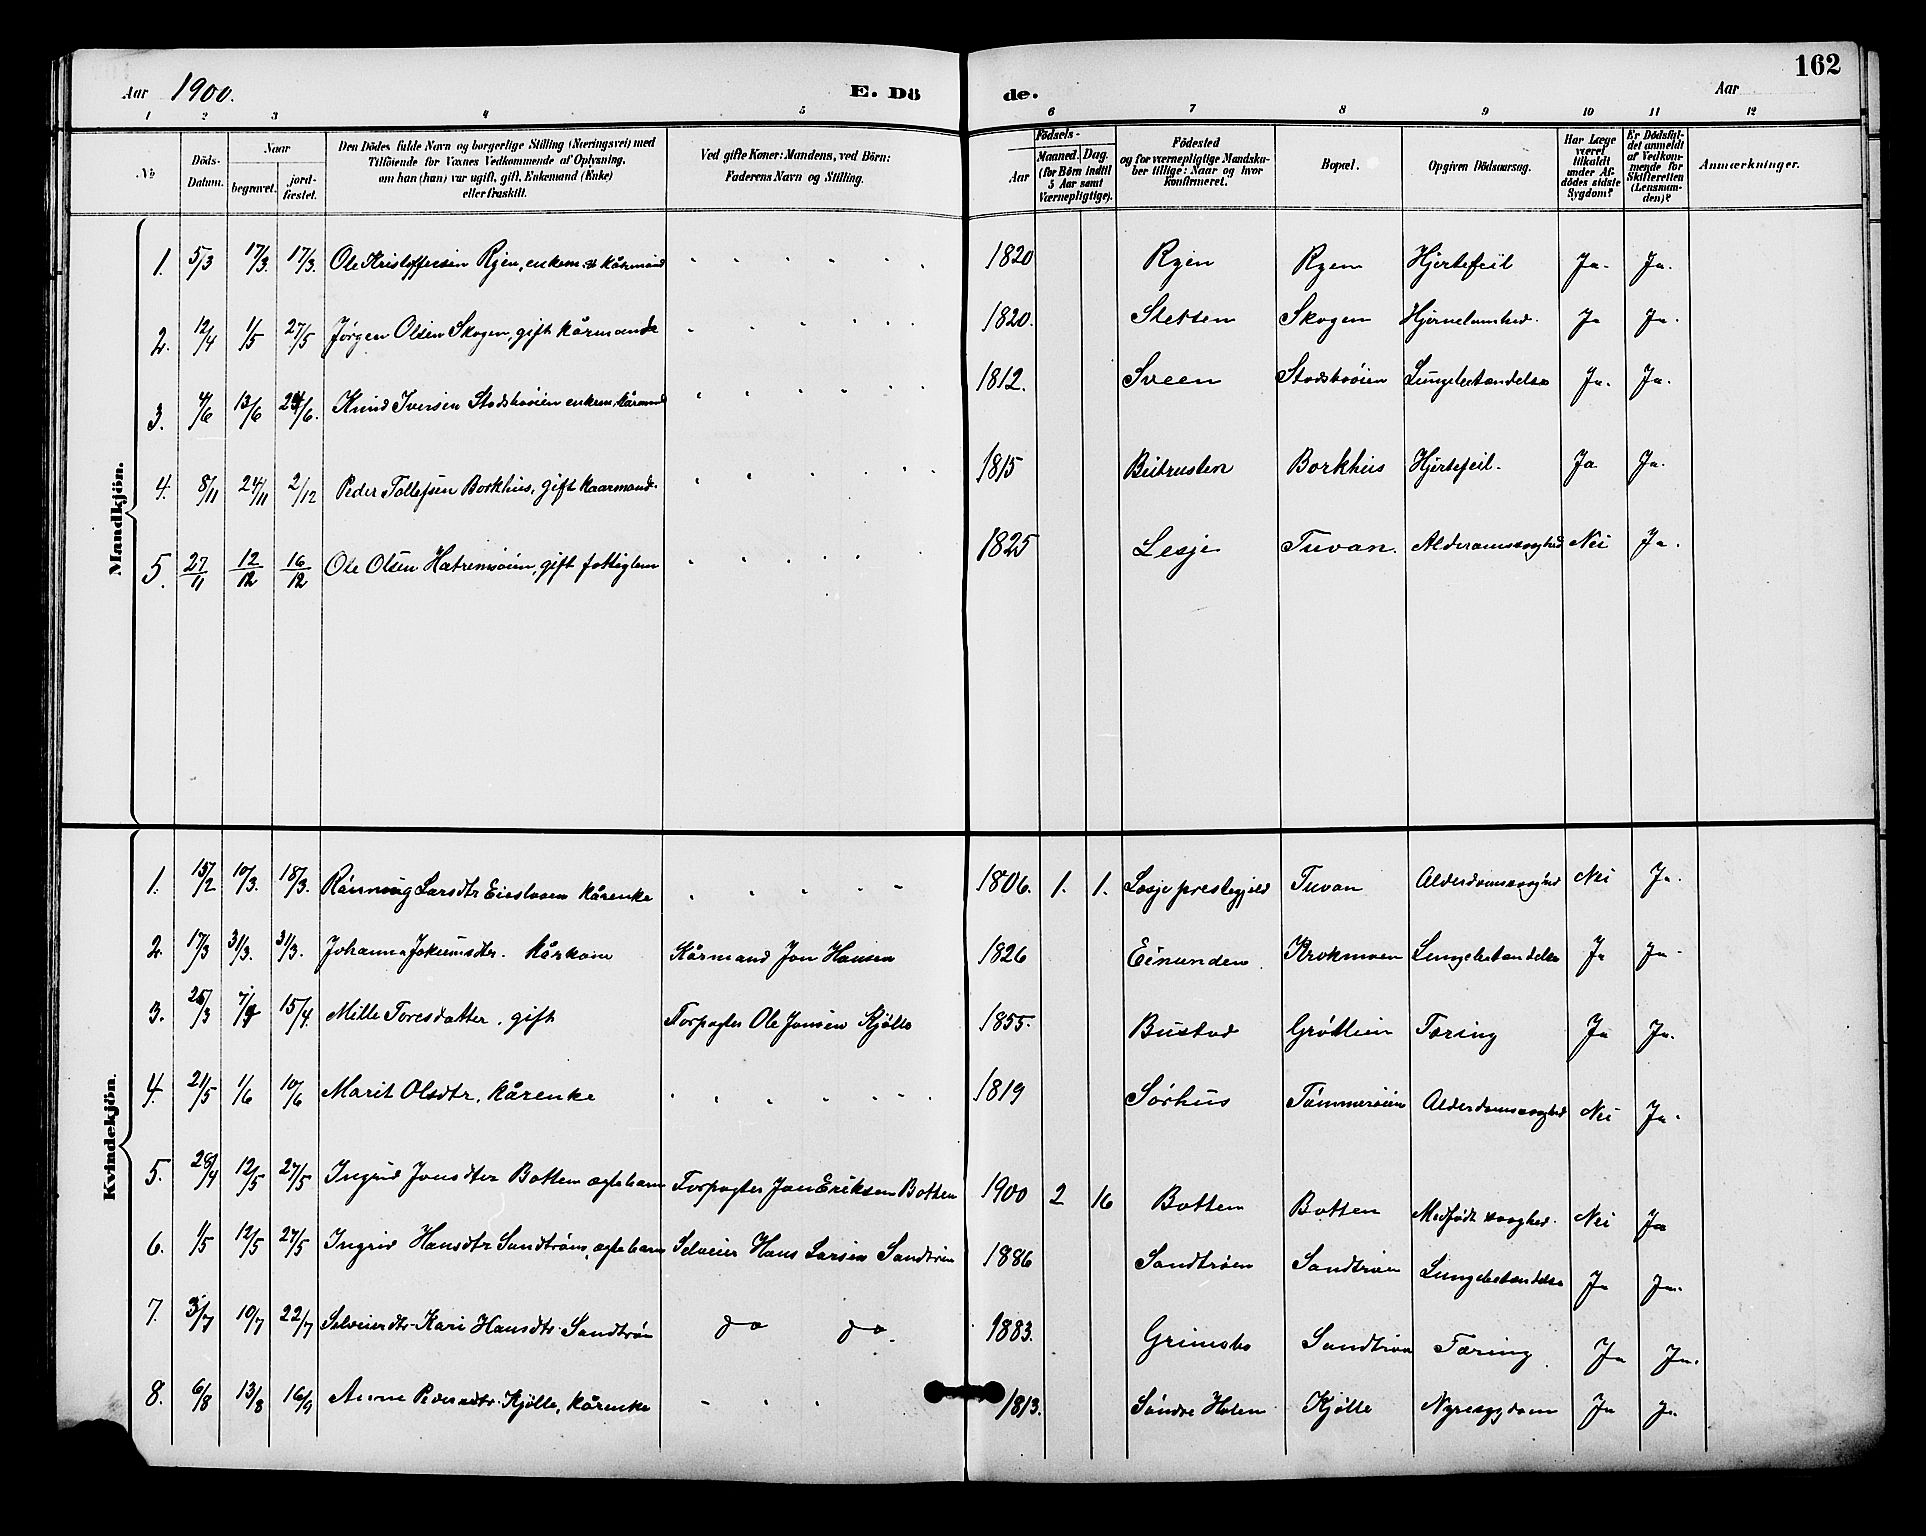 162
Aar 1900. E. Dö de. Aar
1 2 3 4 5 6 7 8 9 10 11 12
No Döds-Datum. Naar begravet. jord-fæstet. Den Dödes fulde Navn og borgerlige Stilling (Næringsvei) med Tilföiende for Voxnes Vedkommende af Oplysning, om han (hun) var ugift, gift, Enkemand (Enke) eller fraskilt. Ved gifte Koner: Mandens, ved Börn: Faderens Navn og Stilling. Födsels- Aar Maaned. Dag. (for Börn indtil 5 Aar samt Værnepligtige). Födested og for værnepligtige Mandskaber tillige: Naar og hvor Konfirmeret. Bopæl. Opgiven Dödsaarsag. Har Læge været tilkaldt under Afdödes sidste Sygdom? Er Dödsfaldet anmeldt af Vedkommende for Skifteretten (Lensmanden)? Anmærkninger.
Mandkjön.
1. 5/3 17/3. 17/3. Ole Kristoffersen Ryen, enkem. kårmand 1820 Ryen Ryen Hjertefeil Ja. Ja.
2. 12/4 1/5 27/5 Jørgen Olsen Skogen, gift kårmand 1820. Sletten Skogen Ja Ja.
3. 4/6 13/6 24/6. Knud Iversen enkem. kårmand 1812. Sveen Lungebetændelse Ja. Ja.
4. 8/11 24/11 2/12 Peder Tollefsen Borkhus, gift kaarmand. 1815 Beitrusten Borkhus Hjertefeil. Ja Ja.
5. 27/11 12/12 16/12 Ole Olsen gift fattiglem 1825 Lesje Tuvan. Alderdomssvaghed Nei Ja.
Kvindekjön.
1. 15/2 10/3. 18/3. Rønnaug Larsdtr kårenke 1806. 1. 1. Lesje prestegjeld Tuvan Alderdomssvaghed Nei Ja.
2. 17/3 31/3. 31/3. Johanna Jokumsdtr. kårkone Kårmand Jon Hansen 1826 Einunden Krokmoen Lungebetændelse Ja Ja.
3. 25/3 15/4. Mille Toresdatter. gift Forpagter Ole Jonsen Kjølle 1855. Bustad Grøtlien Tæring Ja Ja.
4. 21/5 1/6 10/6 Marit Olsdtr, kårenke 1819 Sørhus Tømmerøien Alderdomssvaghed Nei Ja.
5. 28/4 12/5 27/5 Ingrid Jonsdtr Botten ægtebarn Forpagter Jon Eriksen Botten 1900 2 16 Botten Botten Medfødt svaghed. Nei Ja
6. 1/5 12/5 27/5 Ingrid Hansdtr Sandtrøen, ægtebarn Selveier Hans Larsen Sandtrøen 1886 Sandtrøen Sandtrøen Lungebetændelse Ja Ja.
7. 3/7 10/7 22/7 Selveierdtr. Kari Hansdtr. Sandtrøen do do. 1883. Grimsbo Sandtrøen Tæring Ja Ja.
8. 6/8 13/8 16/9 Anne Pedersdtr. Kjølle, kårenke 1813. Søndre Holen Kjølle Nyresygdom Ja Ja.